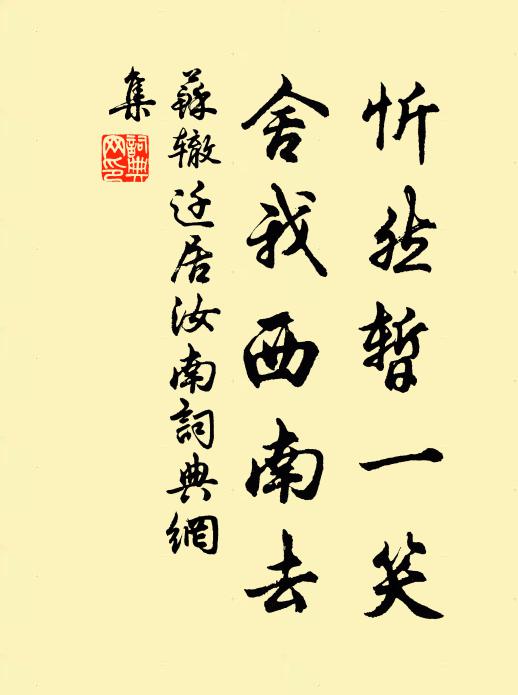 忻然暫一笑
舍我西南去
蘇辙迁居汝南詞典網
集
詞典網印